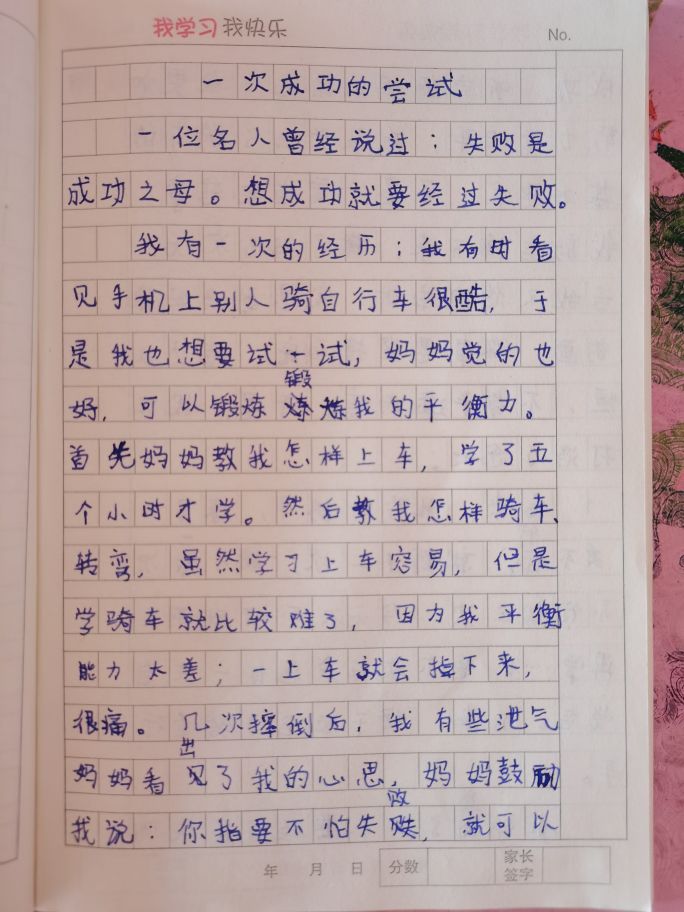 我学习 我快乐
No.
一次成功的尝试
一位名人曾经说过：失败是
成功之母。想成功就要经过失败。
我有一次的经历：我有时看
见手机上别人骑自行车很酷，于
是我也想要试一试，妈妈觉的也
锻
好，可以锻炼炼炼我的平衡力。
首先妈妈教我怎样上车，学了五
个小时才学。然后教我怎样骑车、
转弯，虽然学习上车容易，但是
学骑车就比较难了，因为我平衡
能力太差；一上车就会掉下来，
很痛。几次摔倒后，我有些泄气
出
妈妈看见了我的心思，妈妈鼓励
败
我说：你指要不怕失，就可以
年 月 日 分数 家长签字